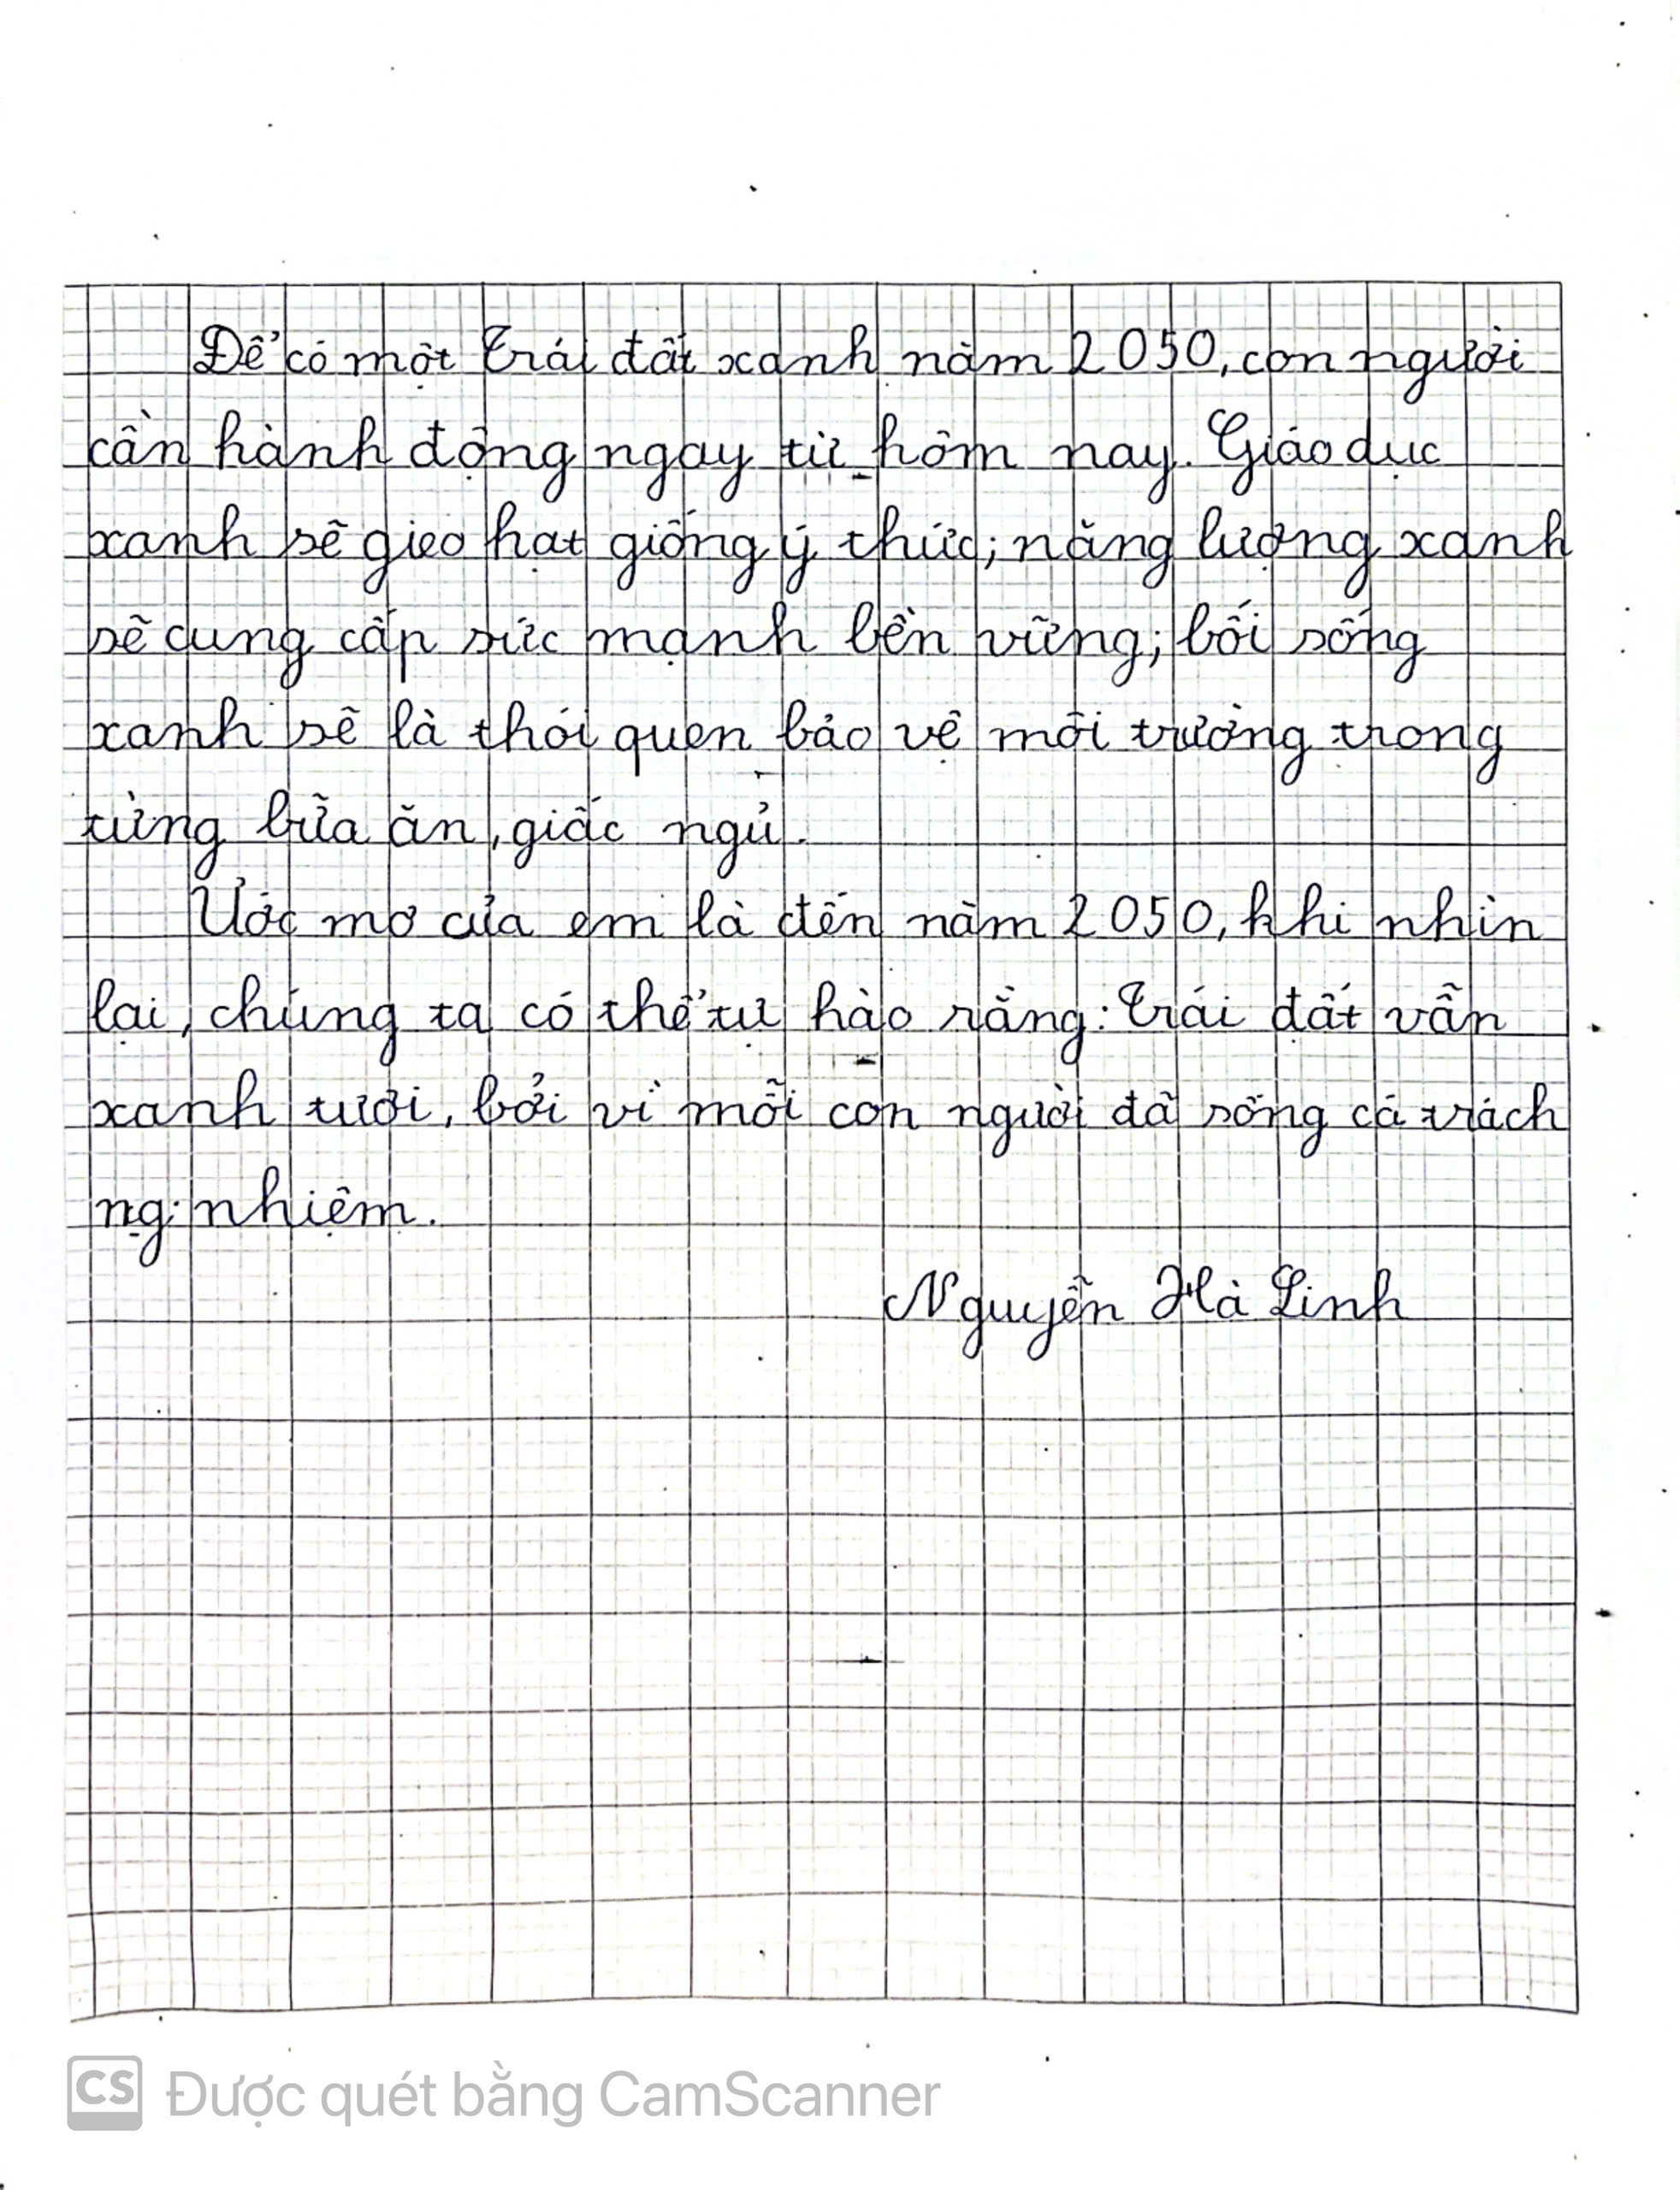 Để có một Trái đất xanh năm 2050, con người
cần hành động ngay từ hôm nay. Giáo dục
xanh sẽ gieo hạt giống ý thức; năng lượng xanh
sẽ cung cấp sức mạnh bền vững; lối sống
xanh sẽ là thói quen bảo vệ môi trường trong
từng bữa ăn, giấc ngủ.
Ước mơ của em là đến năm 2050, khi nhìn
lại, chúng ta có thể tự hào rằng: Trái đất vẫn
xanh tươi, bởi vì mỗi con người đã sống có trách
ng nhiệm.
Nguyễn Hà Linh
CS Được quét bằng CamScanner